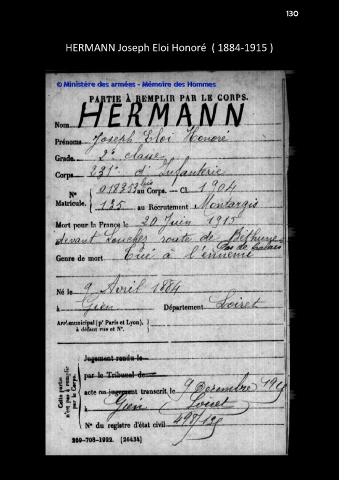 130
HERMANN Joseph Eloi Honoré ( 1884-1915 )
© Ministère des armées - Mémoire des Hommes
PARTIE À REMPLIR PAR LE CORPS.
Nom HERMANN
Prénoms Joseph Eloi Honoré
Grade 2e classe
Corps 231e d'Infanterie
N° 018233 bis au Corps. — Cl. 1904
Matricule. 135 au Recrutement Montargis
Mort pour la France le 20 Juin 1915
devant Louches route de Béthune
Pas de Calais
Genre de mort Tué à l'ennemi
Né le 9 Avril 1884
à Gien Département Loiret
Arrt municipal (pr Paris et Lyon),
à défaut rue et N°.
Cette partie n'est pas à remplir par le Corps.
Jugement rendu le
par le Tribunal de
acte ou jugement transcrit le 9 Décembre
à Gien Loiret
N° du registre d'état civil 498/129
269-708-1922. [26434]